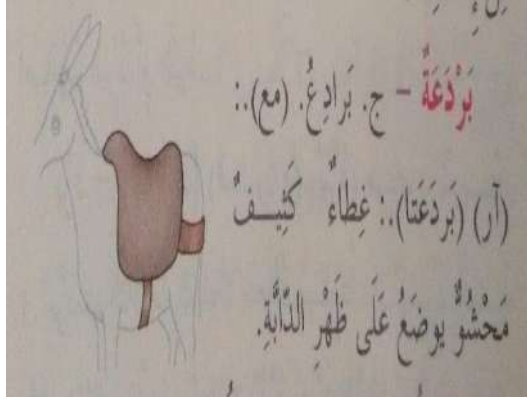 بَرْدَعَةٌ – ج. بَرادِعُ. (مع).:
(آر) (بَردَعَتا).: غِطاءٌ كَثِيـــفٌ
مَحْشُوٌّ يوضَعُ عَلَى ظَهْرِ الدّابَّةِ.